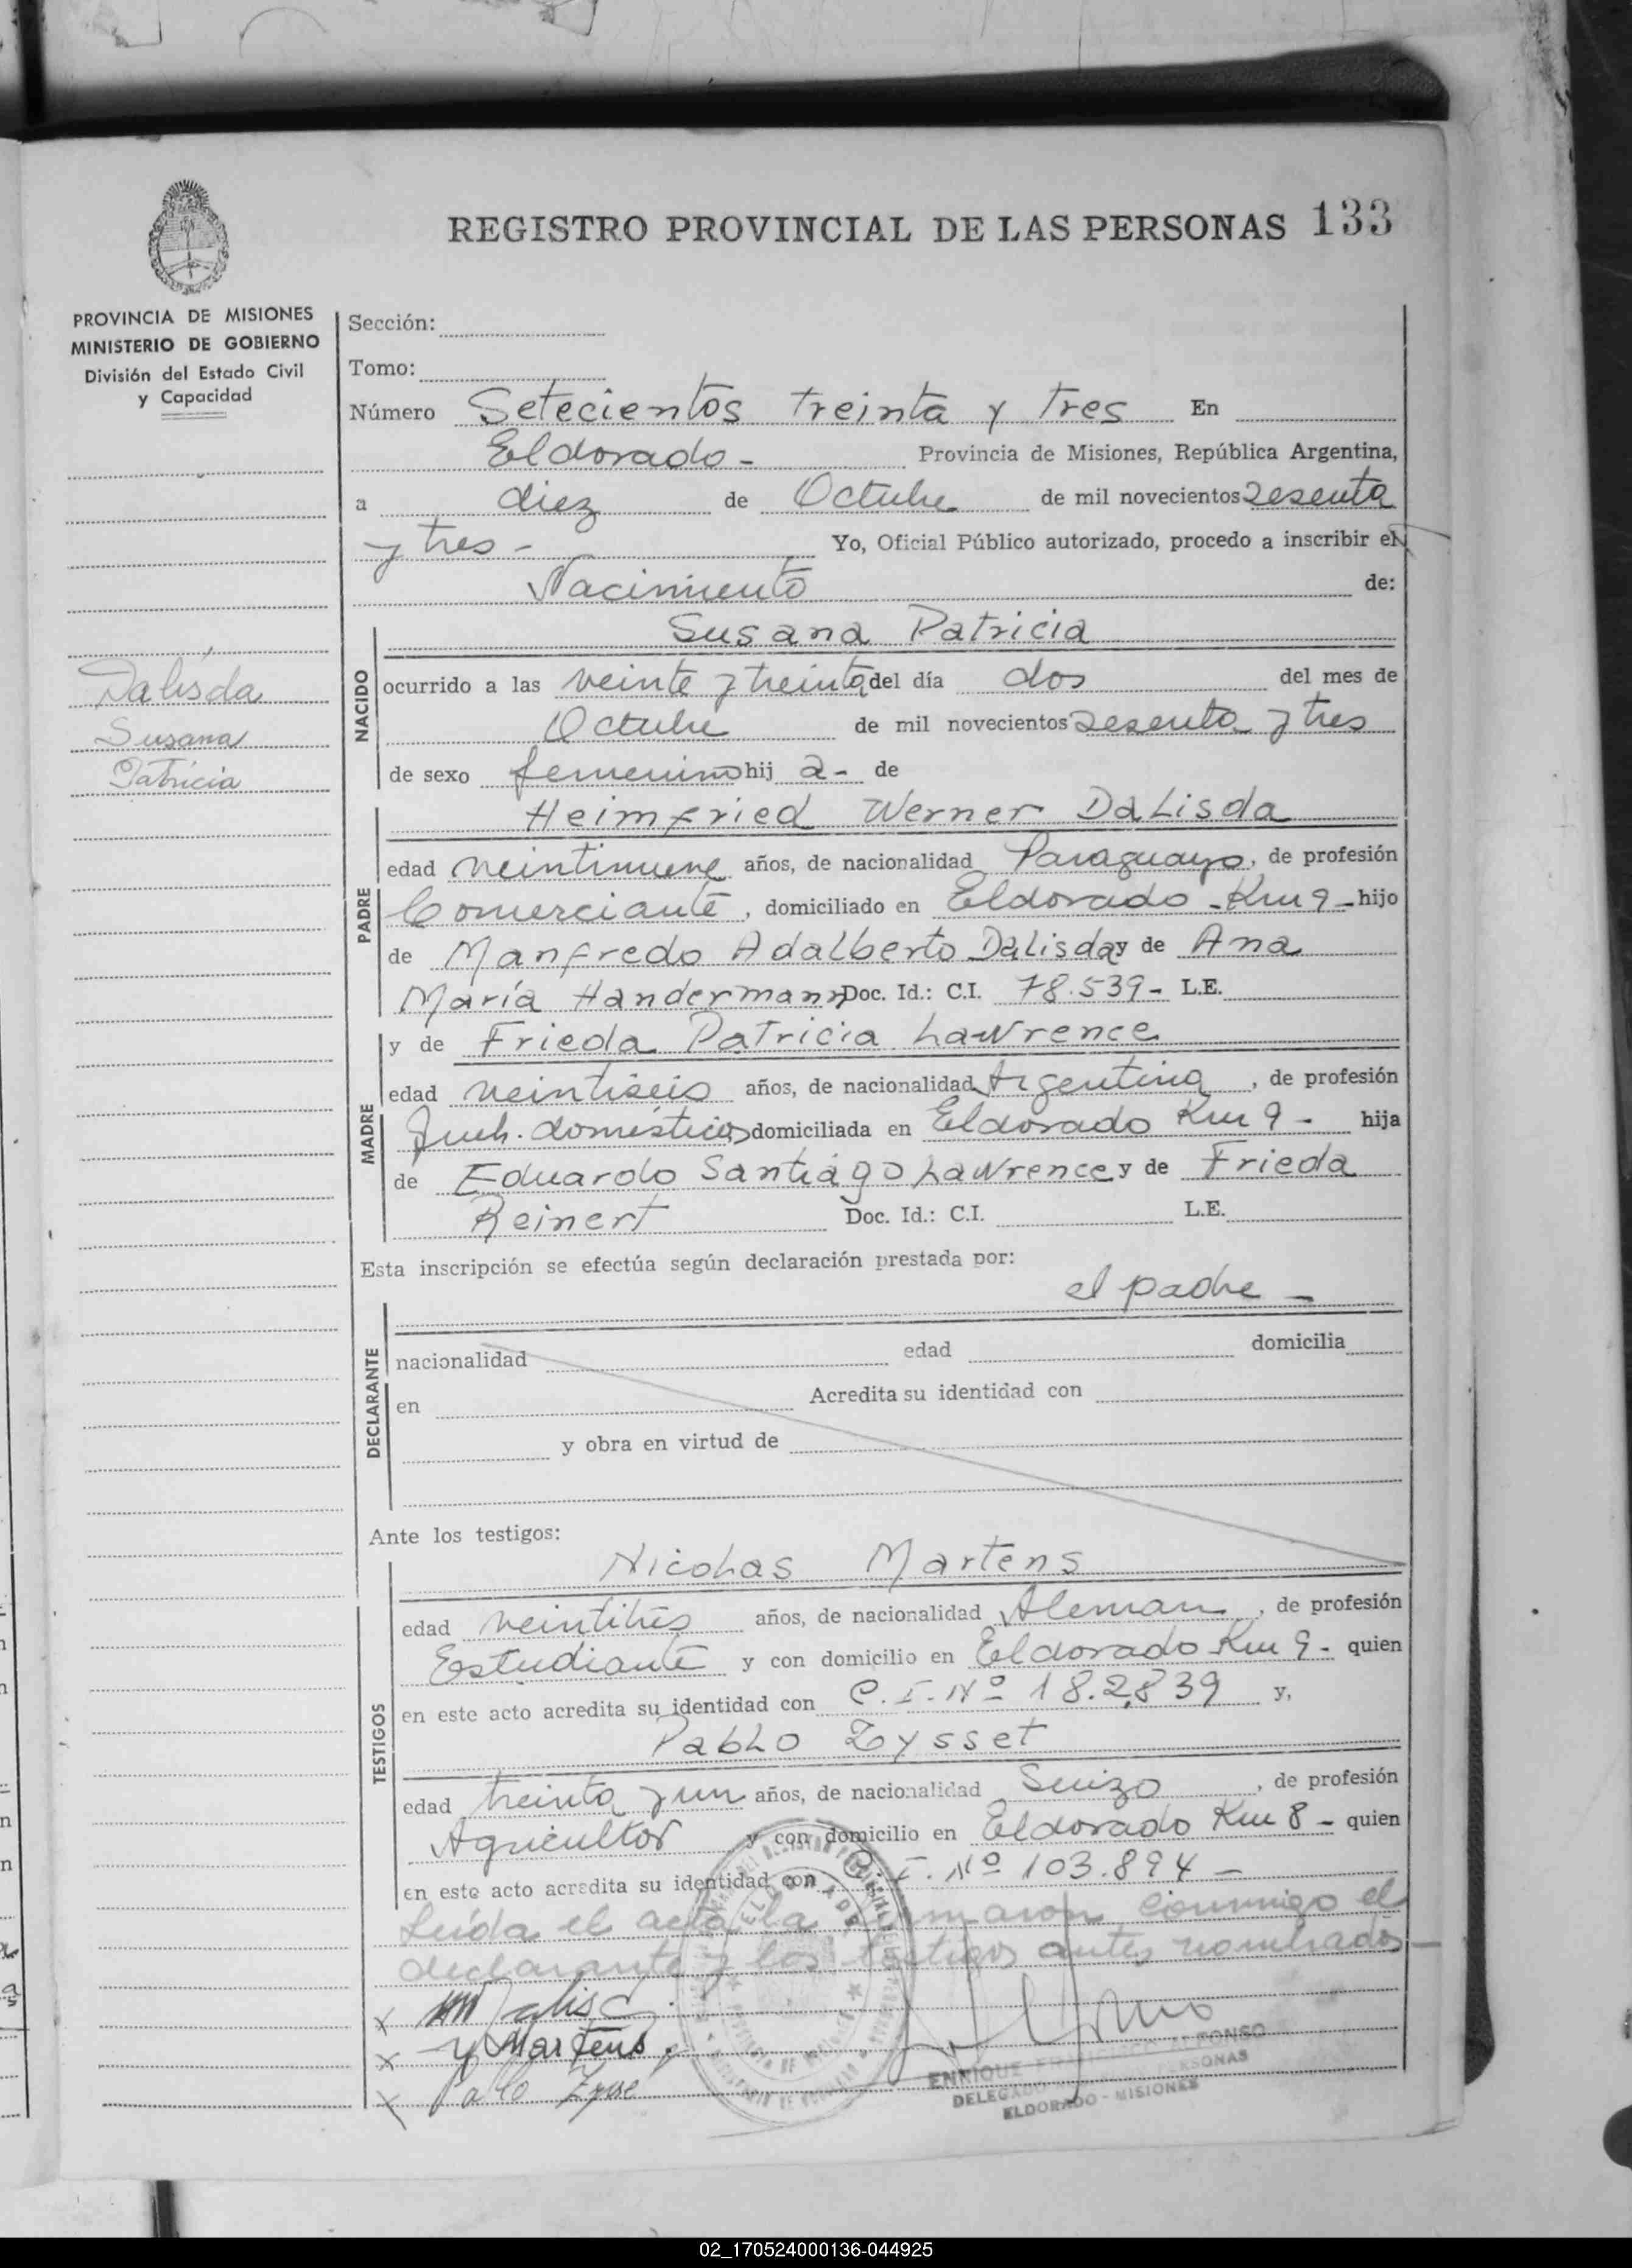 REGISTRO PROVINCIAL DE LAS PERSONAS 133
PROVINCIA DE MISIONES
MINISTERIO DE GOBIERNO
División del Estado Civil
y Capacidad
Dalisda
Susana
Patricia
Sección:
Tomo:
Número Setecientos treinta y tres En
Eldorado - Provincia de Misiones, República Argentina,
a diez de Octubre de mil novecientos sesenta
y tres - Yo, Oficial Público autorizado, procedo a inscribir el
Nacimiento de:
NACIDO
Susana Patricia
ocurrido a las veinte y treinta del día dos del mes de
Octubre de mil novecientos sesenta y tres
de sexo femenino hij a - de
PADRE
Heimfried Werner Dalisda
edad veintinueve años, de nacionalidad Paraguayo, de profesión
Comerciante, domiciliado en Eldorado - Km 9 - hijo
de Manfredo Adalberto Dalisda y de Ana
María Handermann Doc. Id.: C.I. 78.539 - L.E.
MADRE
y de Frieda Patricia Lawrence
edad veintiseis años, de nacionalidad Argentina, de profesión
Queh. domésticos domiciliada en Eldorado Km 9 - hija
de Eduardo Santiago Lawrence y de Frieda
Reinert Doc. Id.: C.I. L.E.
Esta inscripción se efectúa según declaración prestada por:
el padre -
DECLARANTE
nacionalidad edad domicilia
en Acredita su identidad con
y obra en virtud de
Ante los testigos:
TESTIGOS
Nicolas Martens
edad veintitrés años, de nacionalidad Aleman, de profesión
Estudiante y con domicilio en Eldorado Km 9 - quien
en este acto acredita su identidad con C.I. Nº 182.839 y,
Pablo Zysset
edad treinta y un años, de nacionalidad Suizo, de profesión
Agricultor y con domicilio en Eldorado Km 8 - quien
en este acto acredita su identidad con C.I. Nº 103.894 -
Leída el acta la firmaron conmigo el
declarante y los testigos antes nombrados -
x
x Martens
x
ENRIQUE FRANCISCO ALFONSO
DELEGADO PERSONAS
ELDORADO - MISIONES
02_170524000136-044925